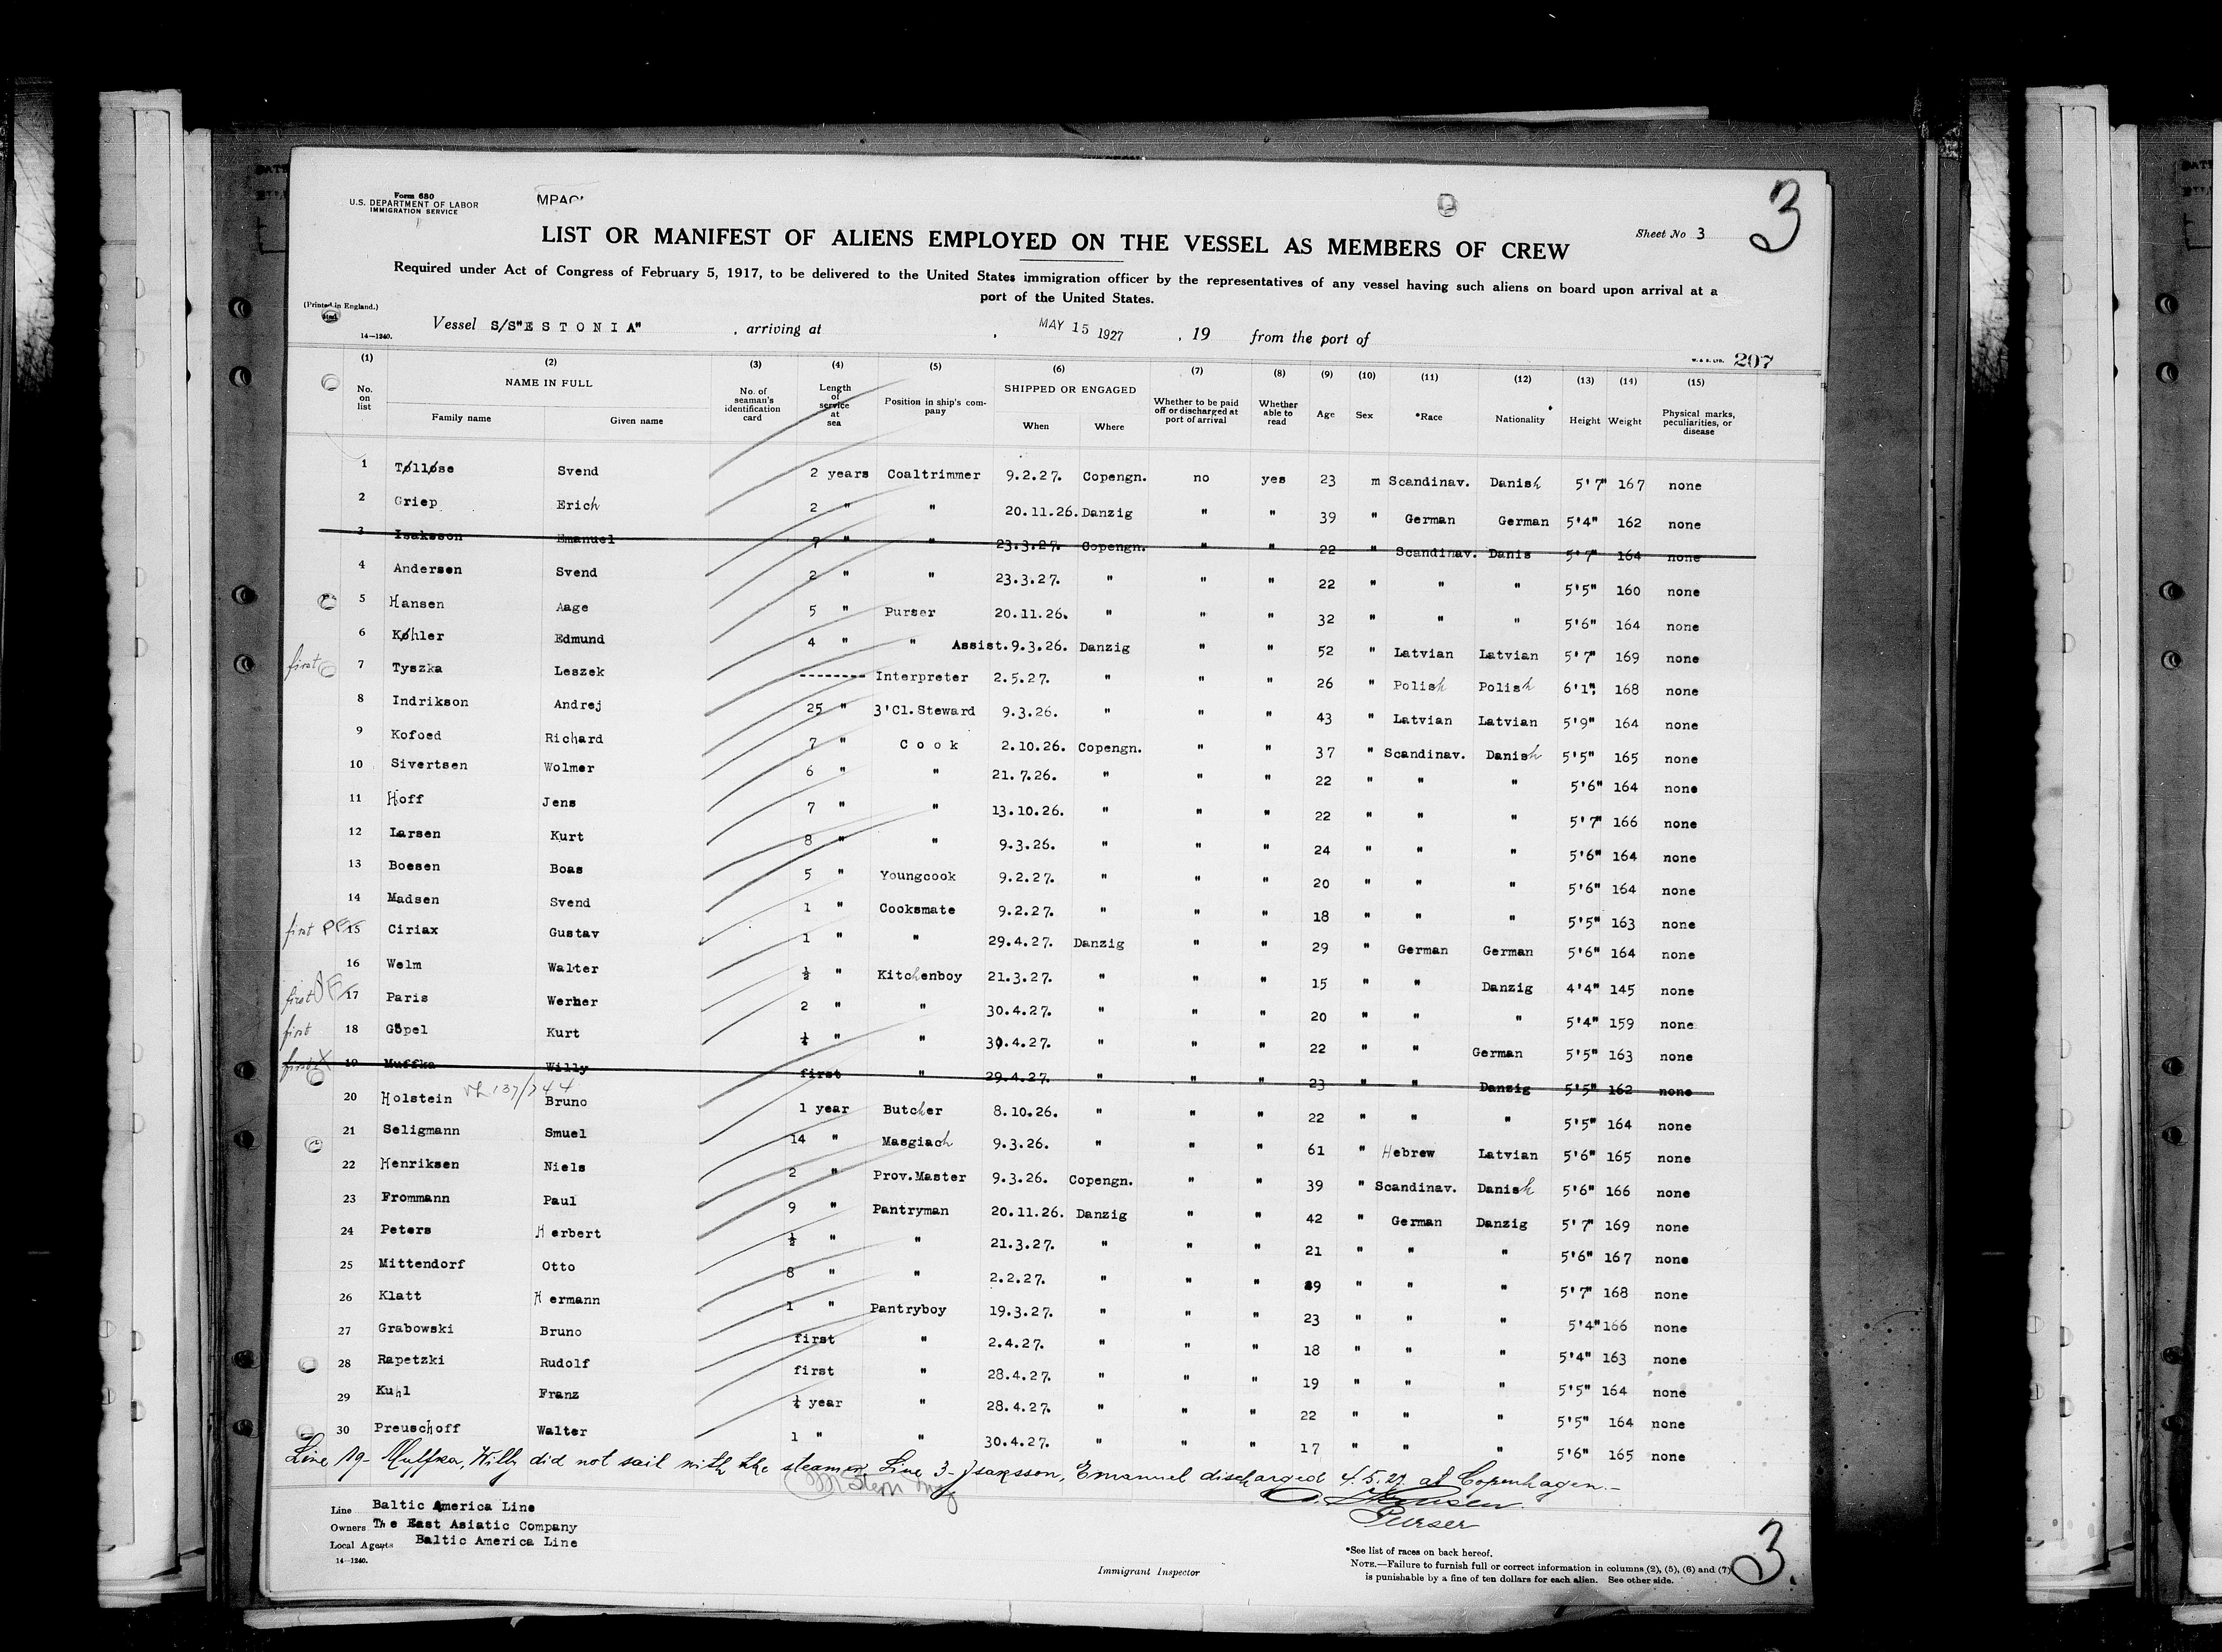 Form 680
U.S. DEPARTMENT OF LABOR
IMMIGRATION SERVICE
3
Sheet No 3
LIST OR MANIFEST OF ALIENS EMPLOYED ON THE VESSEL AS MEMBERS OF CREW
Required under Act of Congress of February 5, 1917, to be delivered to the United States immigration officer by the representatives of any vessel having such aliens on board upon arrival at a
port of the United States.
(Printed in England.)
14—1240.
Vessel S/S"E S T O N I A" , arriving at , MAY 15 1927 , 19 from the port of
W. & S. LTD. 207
(1) (2) (3) (4) (5) (6) (7) (8) (9) (10) (11) (12) (13) (14) (15)
No. on list NAME IN FULL Family name Given name No. of seaman's identification card Length of service at sea Position in ship's company SHIPPED OR ENGAGED When Where Whether to be paid off or discharged at port of arrival Whether able to read Age Sex *Race Nationality Height Weight Physical marks, peculiarities, or disease
1 Tølløse Svend 2 years Coaltrimmer 9.2.27. Copengn. no yes 23 m Scandinav. Danish 5'7" 167 none
2 Griep Erich 2 " " 20.11.26. Danzig " " 39 " German German 5'4" 162 none
3 Isaksson Emanuel 7 " " 23.3.27. Copengn. " " 22 " Scandinav. Danis 5'7" 164 none
4 Andersen Svend 2 " " 23.3.27. " " " 22 " " " 5'5" 160 none
5 Hansen Aage 5 " Purser 20.11.26. " " " 32 " " " 5'6" 164 none
6 Køhler Edmund 4 " " Assist. 9.3.26. Danzig " " 52 " Latvian Latvian 5'7" 169 none
first 7 Tyszka Leszek -------- Interpreter 2.5.27. " " " 26 " Polish Polish 6'1" 168 none
8 Indrikson Andrej 25 " 3'Cl.Steward 9.3.26. " " " 43 " Latvian Latvian 5'9" 164 none
9 Kofoed Richard 7 " C o o k 2.10.26. Copengn. " " 37 " Scandinav. Danish 5'5" 165 none
10 Sivertsen Wolmer 6 " " 21.7.26. " " " 22 " " " 5'6" 164 none
11 Hoff Jens 7 " " 13.10.26. " " " 22 " " " 5'7" 166 none
12 Larsen Kurt 8 " " 9.3.26. " " " 24 " " " 5'6" 164 none
13 Boesen Boas 5 " Youngcook 9.2.27. " " " 20 " " " 5'6" 164 none
14 Madsen Svend 1 " Cooksmate 9.2.27. " " " 18 " " " 5'5" 163 none
first 15 Ciriax Gustav 1 " " 29.4.27. Danzig " " 29 " German German 5'6" 164 none
16 Welm Walter ½ " Kitchenboy 21.3.27. " " " 15 " " Danzig 4'4" 145 none
first 17 Paris Werner 2 " " 30.4.27. " " " 20 " " " 5'4" 159 none
first 18 Göpel Kurt ¼ " " 30.4.27. " " " 22 " " German 5'5" 163 none
first X 19 Muffka Willy first " 29.4.27. " " " 23 " " Danzig 5'5" 162 none
20 Holstein Bruno 1 year Butcher 8.10.26. " " " 22 " " " 5'5" 164 none
21 Seligmann Smuel 14 " Masgiach 9.3.26. " " " 61 " Hebrew Latvian 5'6" 165 none
22 Henriksen Niels 2 " Prov.Master 9.3.26. Copengn. " " 39 " Scandinav. Danish 5'6" 166 none
23 Frommann Paul 9 " Pantryman 20.11.26. Danzig " " 42 " German Danzig 5'7" 169 none
24 Peters Herbert ½ " " 21.3.27. " " " 21 " " " 5'6" 167 none
25 Mittendorf Otto 8 " " 2.2.27. " " " 9 " " " 5'7" 168 none
26 Klatt Hermann 1 " Pantryboy 19.3.27. " " " 23 " " " 5'4" 166 none
27 Grabowski Bruno first " 2.4.27. " " " 18 " " " 5'4" 163 none
28 Rapetzki Rudolf first " 28.4.27. " " " 19 " " " 5'5" 164 none
29 Kuhl Franz ¼ year " 28.4.27. " " " 22 " " " 5'5" 164 none
30 Preuschoff Walter 1 " " 30.4.27. " " " 17 " " " 5'6" 165 none
Line 19- Muffka, Willy did not sail with the steamer. Line 3- Isaksson, Emanuel discharged 4.5.27 at Copenhagen.-
Purser
Line Baltic America Line
Owners The East Asiatic Company
Local Agents Baltic America Line
14—1240.
Immigrant Inspector
*See list of races on back hereof.
NOTE.—Failure to furnish full or correct information in columns (2), (5), (6) and (7)
is punishable by a fine of ten dollars for each alien. See other side.
3.